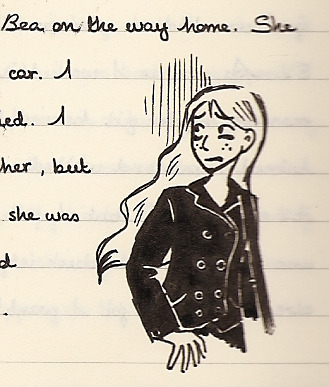 Bea on the way home. She
car. I
ied. I
her, but
she was
d
.